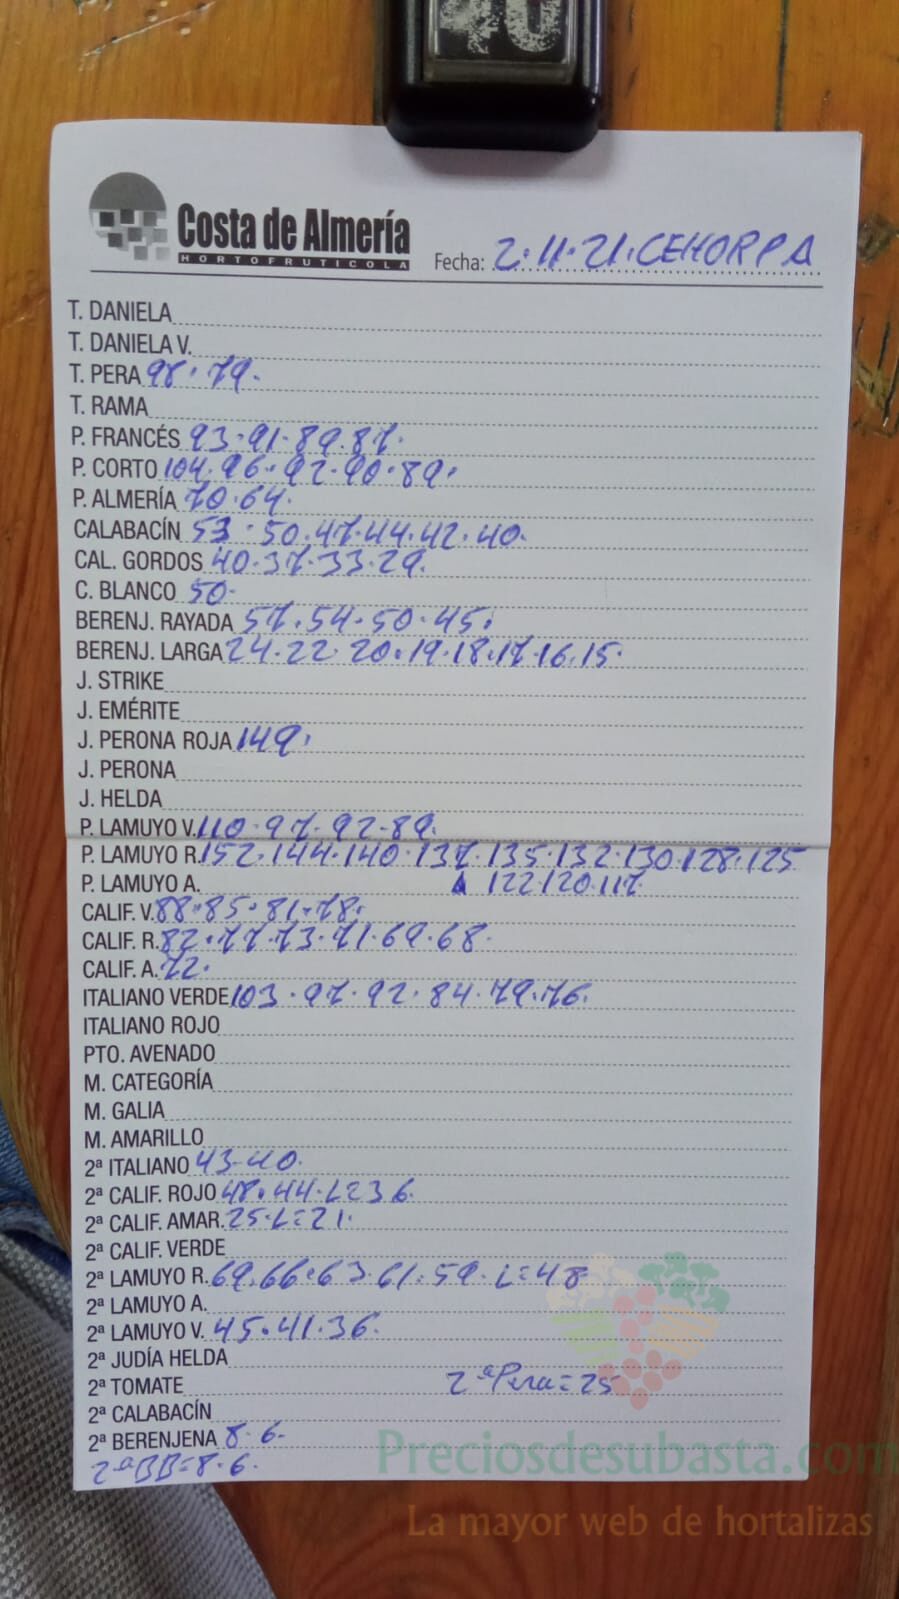 Costa de Almería
HORTOFRUTICOLA
Fecha: 2·11·21·CEHORPA
T. DANIELA
T. DANIELA V.
T. PERA 98·79·
T. RAMA
P. FRANCÉS 93·91·89·87·
P. CORTO 104·96·92·90·89·
P. ALMERÍA 70·64·
CALABACÍN 53·50·47·44·42·40·
CAL. GORDOS 40·37·33·29·
C. BLANCO 50·
BERENJ. RAYADA 57·54·50·45·
BERENJ. LARGA 24·22·20·19·18·17·16·15·
J. STRIKE
J. EMÉRITE
J. PERONA ROJA 149·
J. PERONA
J. HELDA
P. LAMUYO V. 110·97·92·89·
P. LAMUYO R. 152·144·140·137·135·132·130·128·125
P. LAMUYO A. 122·120·117·
CALIF. V. 88·85·81·78·
CALIF. R. 82·77·73·71·69·68·
CALIF. A. 72·
ITALIANO VERDE 103·97·92·84·79·76·
ITALIANO ROJO
PTO. AVENADO
M. CATEGORÍA
M. GALIA
M. AMARILLO
2ª ITALIANO 43·40·
2ª CALIF. ROJO 48·44·L=36·
2ª CALIF. AMAR. 25·L=21·
2ª CALIF. VERDE
2ª LAMUYO R. 69·66·63·61·59·L=48
2ª LAMUYO A.
2ª LAMUYO V. 45·41·36·
2ª JUDÍA HELDA
2ª TOMATE 2ª Pera=25
2ª CALABACÍN
2ª BERENJENA 8·6·
2ªBB=8·6·
Preciosdesubasta.com
La mayor web de hortalizas